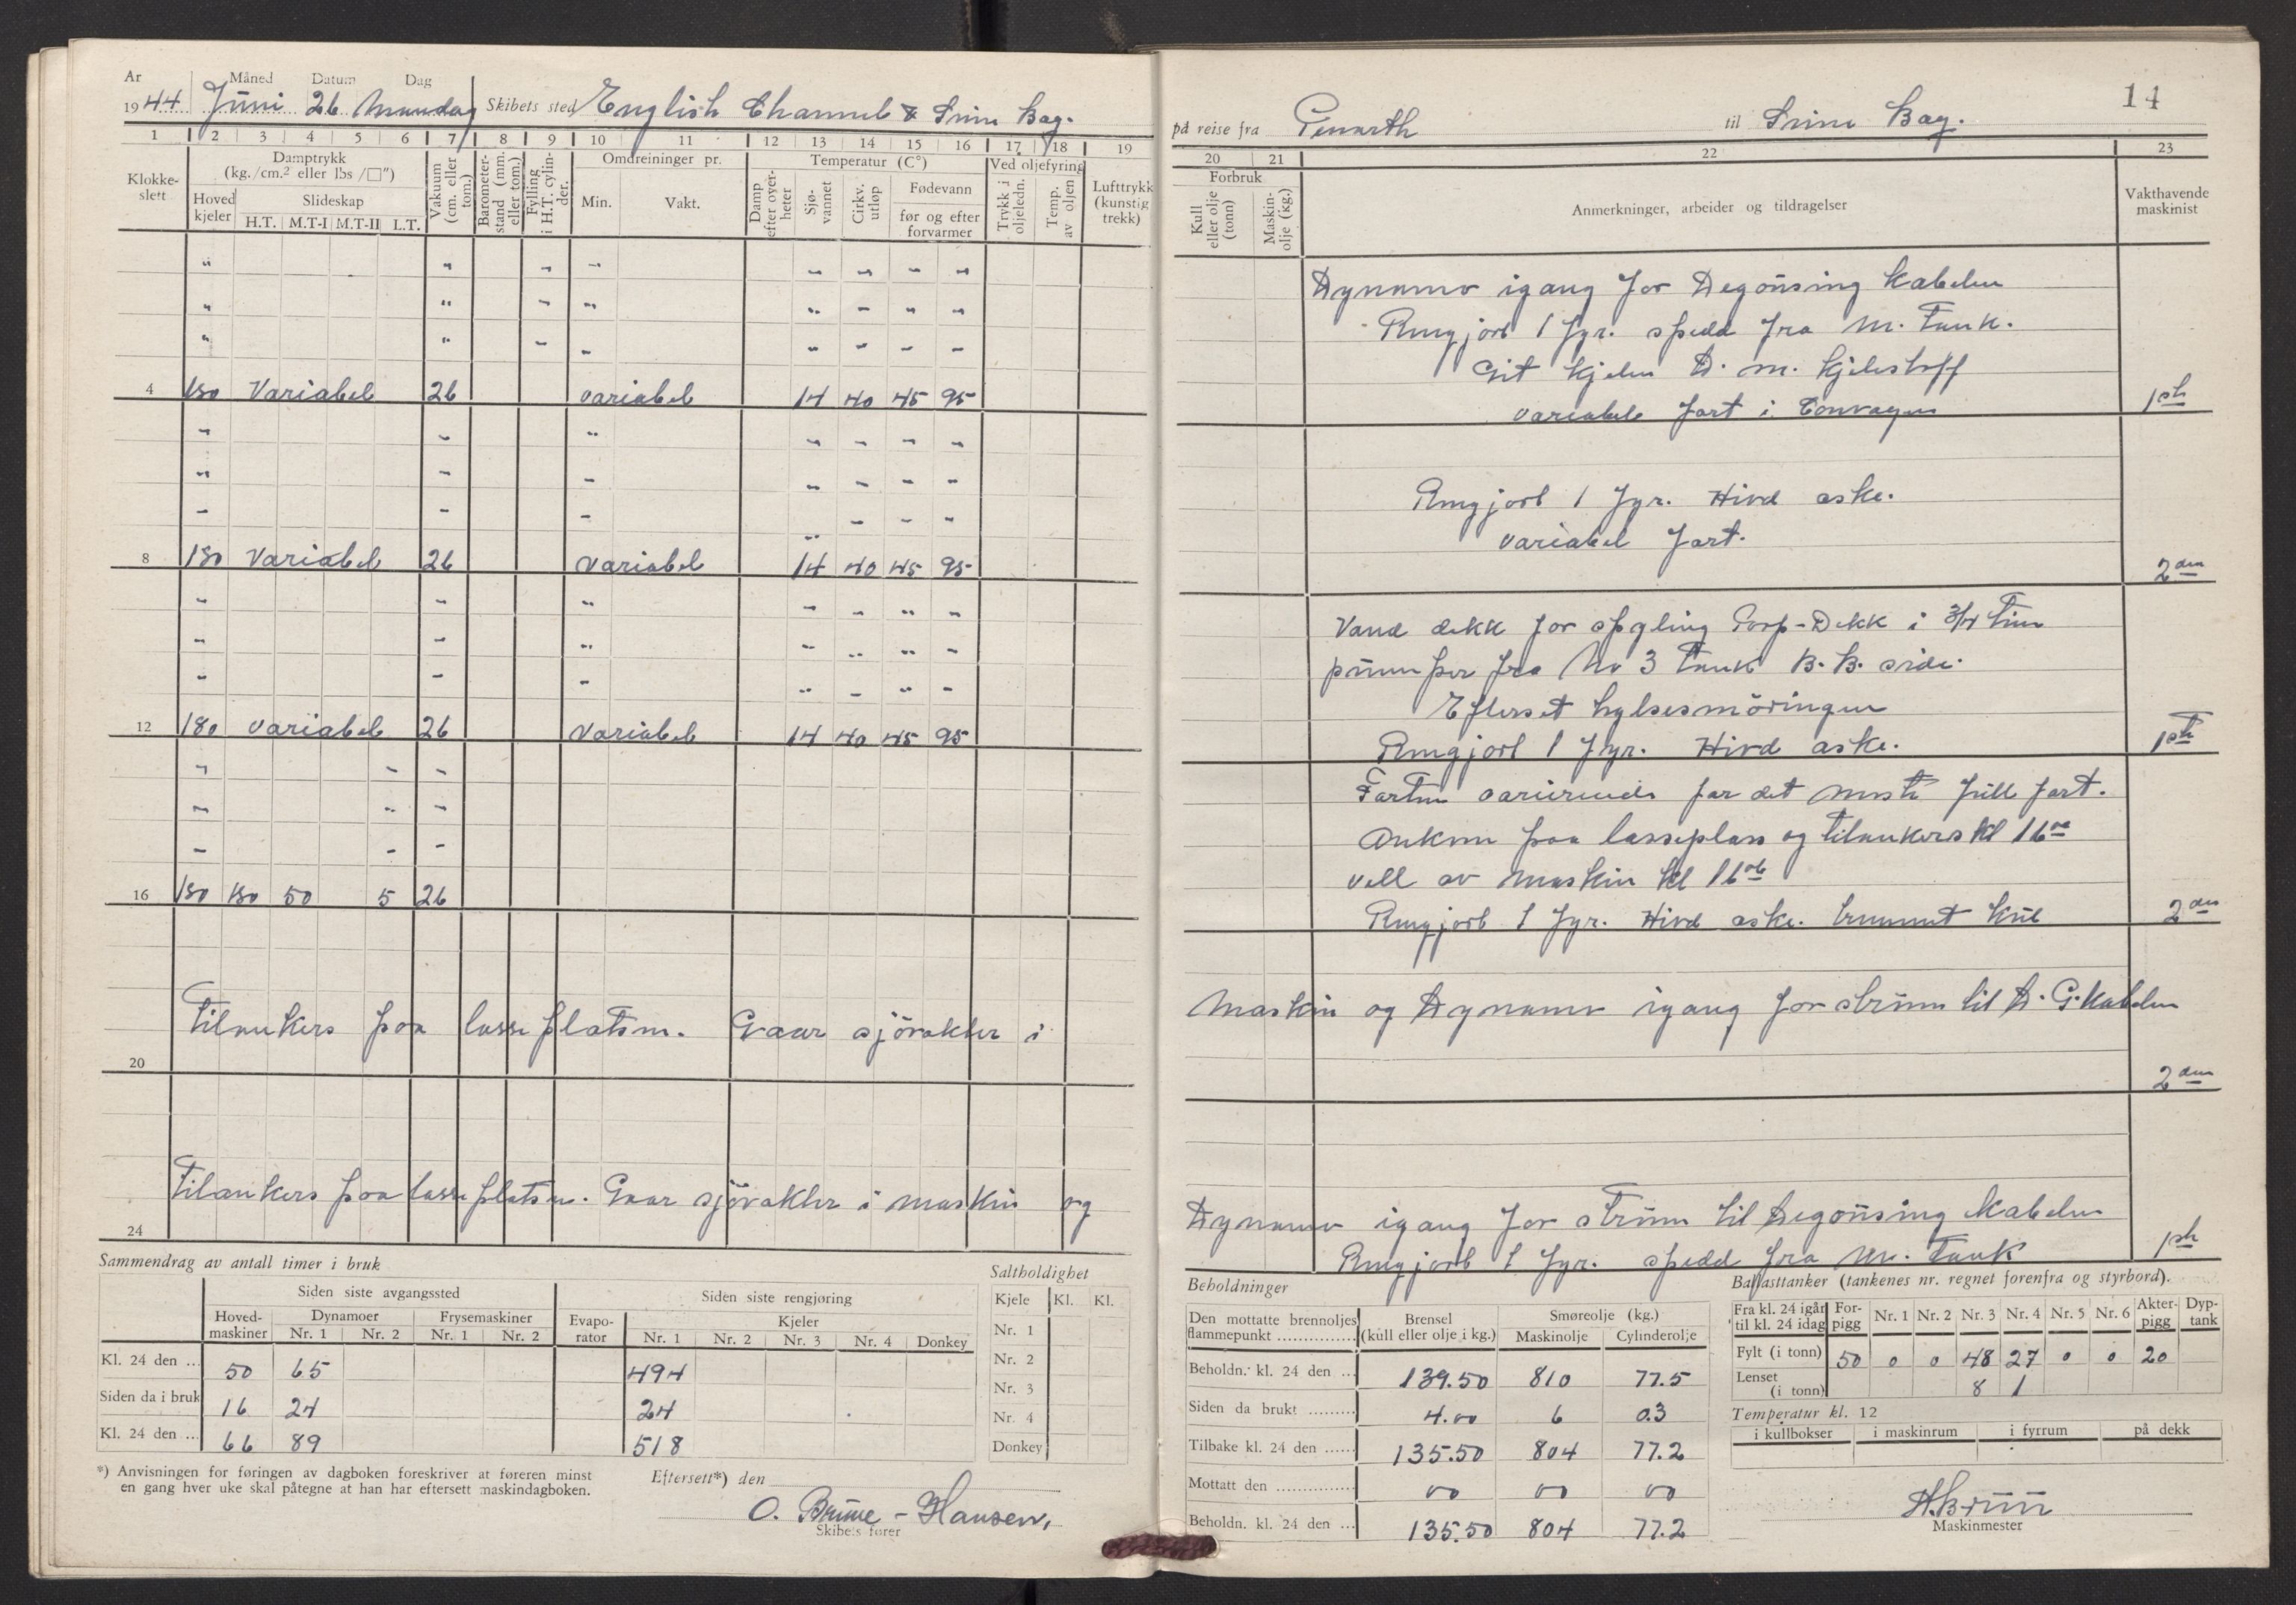 År Måned Datum Dag
1944 Juni 26 Mandag Skibets sted English Channel & Seine Bay.
1 2 3 4 5 6 7 8 9 10 11 12 13 14 15 16 17 18 19
Klokke-slett
Damptrykk (kg./cm.² eller lbs /□")
Hoved kjeler
Slideskap
H.T. M.T-I M.T-II L.T.
Vakuum (cm. eller tom.)
Barometer-stand (mm. eller tom.)
Fylling i H.T. cylin-der.
Omdreininger pr.
Min. Vakt.
Temperatur (C°)
Damp efter over-heter
Sjø-vannet
Cirkv. utløp
Fødevann
før og efter forvarmer
Ved oljefyring
Trykk i oljeledn.
Temp. av oljen
Lufttrykk (kunstig trekk)
" " " " " " " "
" " " " " " " "
" " " " " " " "
4 180 Variabel 26 variabel 14 40 45 95
" " " " " " "
" " " " " " "
" " " " " " "
8 180 Variabel 26 variabel 14 40 45 95
" " " " " " "
" " " " " " "
" " " " " " "
12 180 variabel 26 variabel 14 40 45 95
" " "
" " "
" " "
16 180 180 50 5 26
Tilankers paa lasseplatsen. Gaar sjövakter i
20
Tilankers paa lasseplatsen. Gaar sjövakter i maskin og
24
Sammendrag av antall timer i bruk
Siden siste avgangssted
Siden siste rengjøring
Hoved-maskiner
Dynamoer
Nr. 1 Nr. 2
Frysemaskiner
Nr. 1 Nr. 2
Evapo-rator
Kjeler
Nr. 1 Nr. 2 Nr. 3 Nr. 4 Donkey
Kl. 24 den ... 50 65 494
Siden da i bruk 16 24 24
Kl. 24 den ... 66 89 518
Saltholdighet
Kjele Kl. Kl.
Nr. 1
Nr. 2
Nr. 3
Nr. 4
Donkey
*) Anvisningen for føringen av dagboken foreskriver at føreren minst
en gang hver uke skal påtegne at han har eftersett maskindagboken.
Eftersett*) den
O. Brune-Hansen,
Skibets fører
14
på reise fra Penarth til Seine Bay.
20 21 22 23
Forbruk
Kull eller olje (tonn)
Maskin-olje (kg.)
Anmerkninger, arbeider og tildragelser
Vakthavende maskinist
Dynamo igang for Degausing kabelen
Rengjort 1 fyr. spedd fra M. Tank.
Git kjelen D. M. kjelestoff
variabel fart i Convoyen 1ste
Rengjort 1 fyr. Hivd aske.
variabel fart.
2den
Vand dekk for spyling Dekk i 3/4 Time
pumper fra No 3 Tank B. B. side.
Efterset hylsesmöringen
Rengjort 1 fyr. Hivd aske. 1ste
Farten varierende for det meste full fart.
Ankom paa lasseplass og tilankers kl 16ºº
vell av maskin kl 16º⁶
Rengjort 1 fyr. Hivd aske. kul 2den
Maskin og Dynamo igang for ström til D. G. Kabelen
2den
Dynamo igang for ström til Degausing Kabelen
Rengjort 1 fyr. spedd fra M. Tank 1ste
Beholdninger
Den mottatte brennoljes flammepunkt ...............
Brensel (kull eller olje i kg.)
Smøreolje (kg.)
Maskinolje Cylinderolje
Beholdn. kl. 24 den ... 139.50 810 77.5
Siden da brukt ......... 4.00 6 0.3
Tilbake kl. 24 den ...... 135.50 804 77.2
Mottatt den ............... 00 00 00
Beholdn. kl. 24 den ... 135.50 804 77.2
Ballasttanker (tankenes nr. regnet forenfra og styrbord).
Fra kl. 24 igår til kl. 24 idag
For-pigg Nr. 1 Nr. 2 Nr. 3 Nr. 4 Nr. 5 Nr. 6 Akter-pigg Dyp-tank
Fylt (i tonn) 50 0 0 48 27 0 0 20
Lenset (i tonn) 8 1
Temperatur kl. 12
i kullbokser i maskinrum i fyrrum på dekk
A. Bruun
Maskinmester